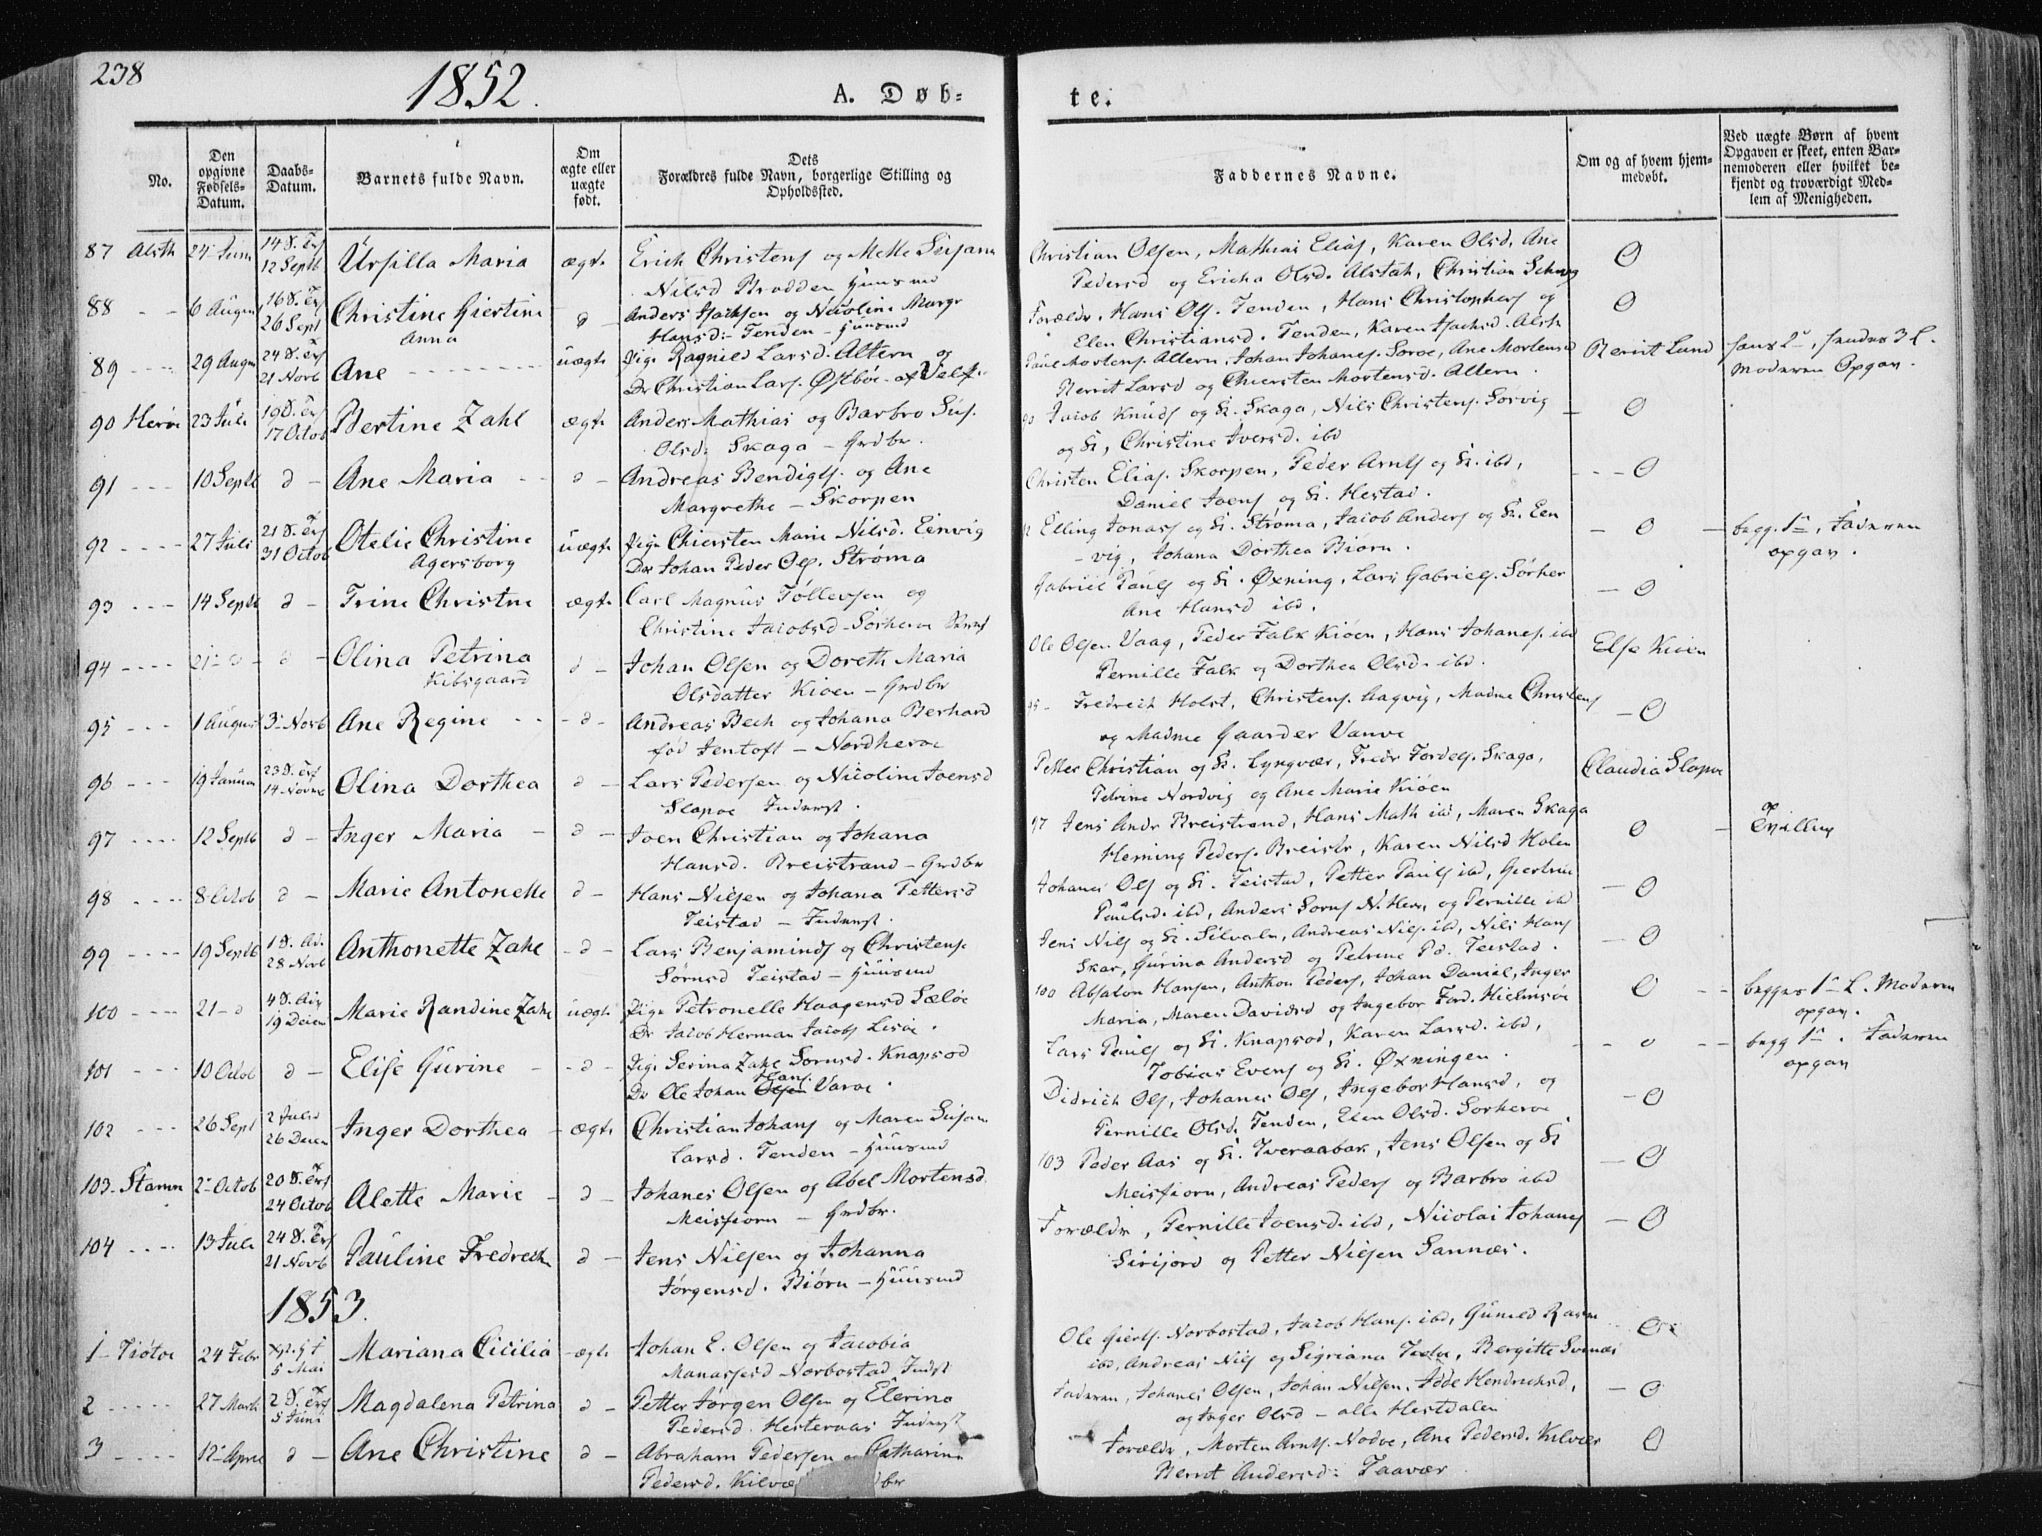 238
1852.
A. Døb-
te.
No.
Den opgivne Fødsels-Datum.
Daabs-Datum.
Barnets fulde Navn.
Om ægte eller uægte født.
Dets Forældres fulde Navn, borgerlige Stilling og Opholdssted.
Faddernes Navne.
Om og af hvem hjem-medøbt.
Ved uægte Børn af hvem Opgaven er skeet, enten Bar-nemoderen eller hvilket be-kjendt og troværdigt Med-lem af Menigheden.
87 Alsth 24 Juni 12 Septb Ursilla Maria ægte Erich Christens og Mette Susana
Nilsd Brodden Huusmd
Christian Olsen, Mathias Elias, Karen Olsd, Ane
Pedersd og Ericha Olsd. Alstah, Christian
O
88 6 Augu 26 Sept Christine Giertine Anna d Anders Isachsen og Nicoline Margr
Hansd. Tenden – Huusmd
Forældr, Hans Ols. Tenden, Hans Christophers og
Elen Christiansd. Tenden, Karen Isachsd.
O
89 29 Augu 21 Novb Ane uægte Pige Ragnild Larsd. Altern og
Dr Christian Lars. Østbøe
Paul Mortens. Altern, Johan Johanes. Soroe, Ane Mortensd
Berrit Larsd og Chiersten Mortensd. Altern.
Berrit Lund
Moderen Opgav.
90 Herøe 23 Juli 17 Octob Bertine Zahl ægte Anders Mathias og Barbro Sus.
Olsd. Skaga – Grdbr.
90 Jacob Knuds og H. Skaga, Nils Christens. Sorvig
og H, Christine Iversd. ibd
O
91 10 Septb d Ane Maria d Andreas Bendigts. og Ane
Margrethe – Skorpen
Christen Elias. Skorpen, Peder Arnts og H. ibd,
Daniel Joens og H. Hestad.
O
92 27 Juli 31 Octob Otelie Christine Agersborg uægte Pige Chiersten Marie Nilsd. Einvig
Dr Johan Peder Ols. Strøma
Elling Jonas og H. Strøma, Jacob Anders og H. Een
-vig, Johana Dorthea Biørn.
O
begg. 1ste, Faderen
opgav.
93 14 Septb d Trine Christne ægte Carl Magnus Tollevsen og
Christine Jacobsd. Sørherøe
Gabriel Pauls og H. Øxning, Lars Gabriels. Sørher
Ane Hansd ibd.
O
94 21 d d Olina Petrina Kibsgaard d Johan Olsen og Doreth Maria
Olsdatter Kioen – Grdbr
Ole Olsen Vaag, Peder Falk Kiøen, Hans Johanes. ibd
Pernille Falk og Dorthea Olsd. ibd.
Else Kioen
95 1 August 3 Novb Ane Regine d Andreas Bech og Johana Berhard
fød Jentoft – Nordherøe
95 Fredrich Holst, Christens. Aagvig, Madme Christens
og Madme Gaarder Vanve
O
96 19 Januar 14 Novmb Olina Dorthea d Lars Pedersen og Nicoline Joensd
Slapøe Inderst.
Petter Christian og H. Lyngvær, Fredr Fordels. Skaga,
Petrine Nordvig og Ane Marie Kiøen
Claudia Slapøe
97 12 Septb d Inger Maria d Joen Christian og Johana
Hansd. Breistrand – Grdbr
97 Jens Andr Breistrand, Hans Math ibd, Maren Skaga
Herning Peders. Breistr, Karen Nilsd Holen
O
Tvilling
98 8 Octob d Marie Antonette d Hans Nilsen og Johana Pettersd
Teistad – Inderst.
Johanes Ols og H. Teistad, Petter Pauls ibd, Giertrui
Paulsd. ibd, Anders Sorens N. Herø, og Pernille ibd
O
99 19 Septb 28 Novb Anthonette Zahl d Lars Benjamins og Christense
Sørensd Teistad – Huusmd
Jens Nils og H. Silvaln, Andreas Nils. ibd, Nils Hans
Skar, Gurina Andersd og Petrine Pd. Teistad.
O
100 21 d 19 Decm Marie Randine Zahl uægte Pige Petronelle Haagensd Sæløe
Dr Jacob Herman Jacobs
100 Absalon Hansen, Anthon Peders, Johan Daniel, Inger
Maria, Maren Davidsd og Ingebor Ford. Hielmsøe
O
begges 1ste L. Moderen
opgav.
101 10 Octob d Elise Gurine d Pige Serina Zahl Sørensd. Knapsod
Dr Ole Johan Olsen Hans. Varoe.
Lars Pauls og H. Knapsod, Karen Larsd. ibd,
Tobias Evens og H. Øxningen.
O
begg 1ste. Faderen
opgav
102 26 Sept 2 Juled 26 Decm Inger Dorthea ægte Christian Johans og Maren Susana
Larsd. Tenden – Huusmd
Didrich Ols, Johanes Ols, Ingebor Hansd, og
Pernille Olsd. Tenden, Elen Olsd. Sorherøe
O
103 Stamn 2 Octob 24 Octob Alette Marie d Johanes Olsen og Abel Mortensd
Meisfiorn – Grdbr.
103 Peder Aas og H. Tveraabak, Jens Olsen og H
Meisfiorn, Andreas Peders og Barbro ibd
O
104 13 Juli 21 Novb Pauline Fredrech d Jens Nilsen og Johanna
Jørgensd. Biørn – Huusmd
Forældr, Pernille Joensd. ibd, Nicolai Johanes
Sirijord og Petter Nilsen Sannæs.
O
1853.
1 Tiøtøe 24 Febr 5 Mai Mariana Cicilia ægte Johan E. Olsen og Jacobia
Manassesd Norbostad Indst
Ole Gierts. Norbostad, Jacob Hans. ibd, Gunild Rasm
ibd, Andreas Nils og Sigriana, Bergitte
O
2 27 Marts 5 Juni Magdalena Petrina d Petter Jørgen Olsen og Elerina
Pedersd. Hesteraas Inderst
Faderen, Johanes Olsen, Johan Nilsen, Hendrichsd,
og Inger Olsd – alle Hestdalen
O
3 12 April d Ane Christine d Abraham Pedersen og Catharina
Pedersd. Kilvæ
Forældr, Morten Arnts. Nodve, Ane Pedersd. Kilvær
Berrit Andersd: Taavær
O